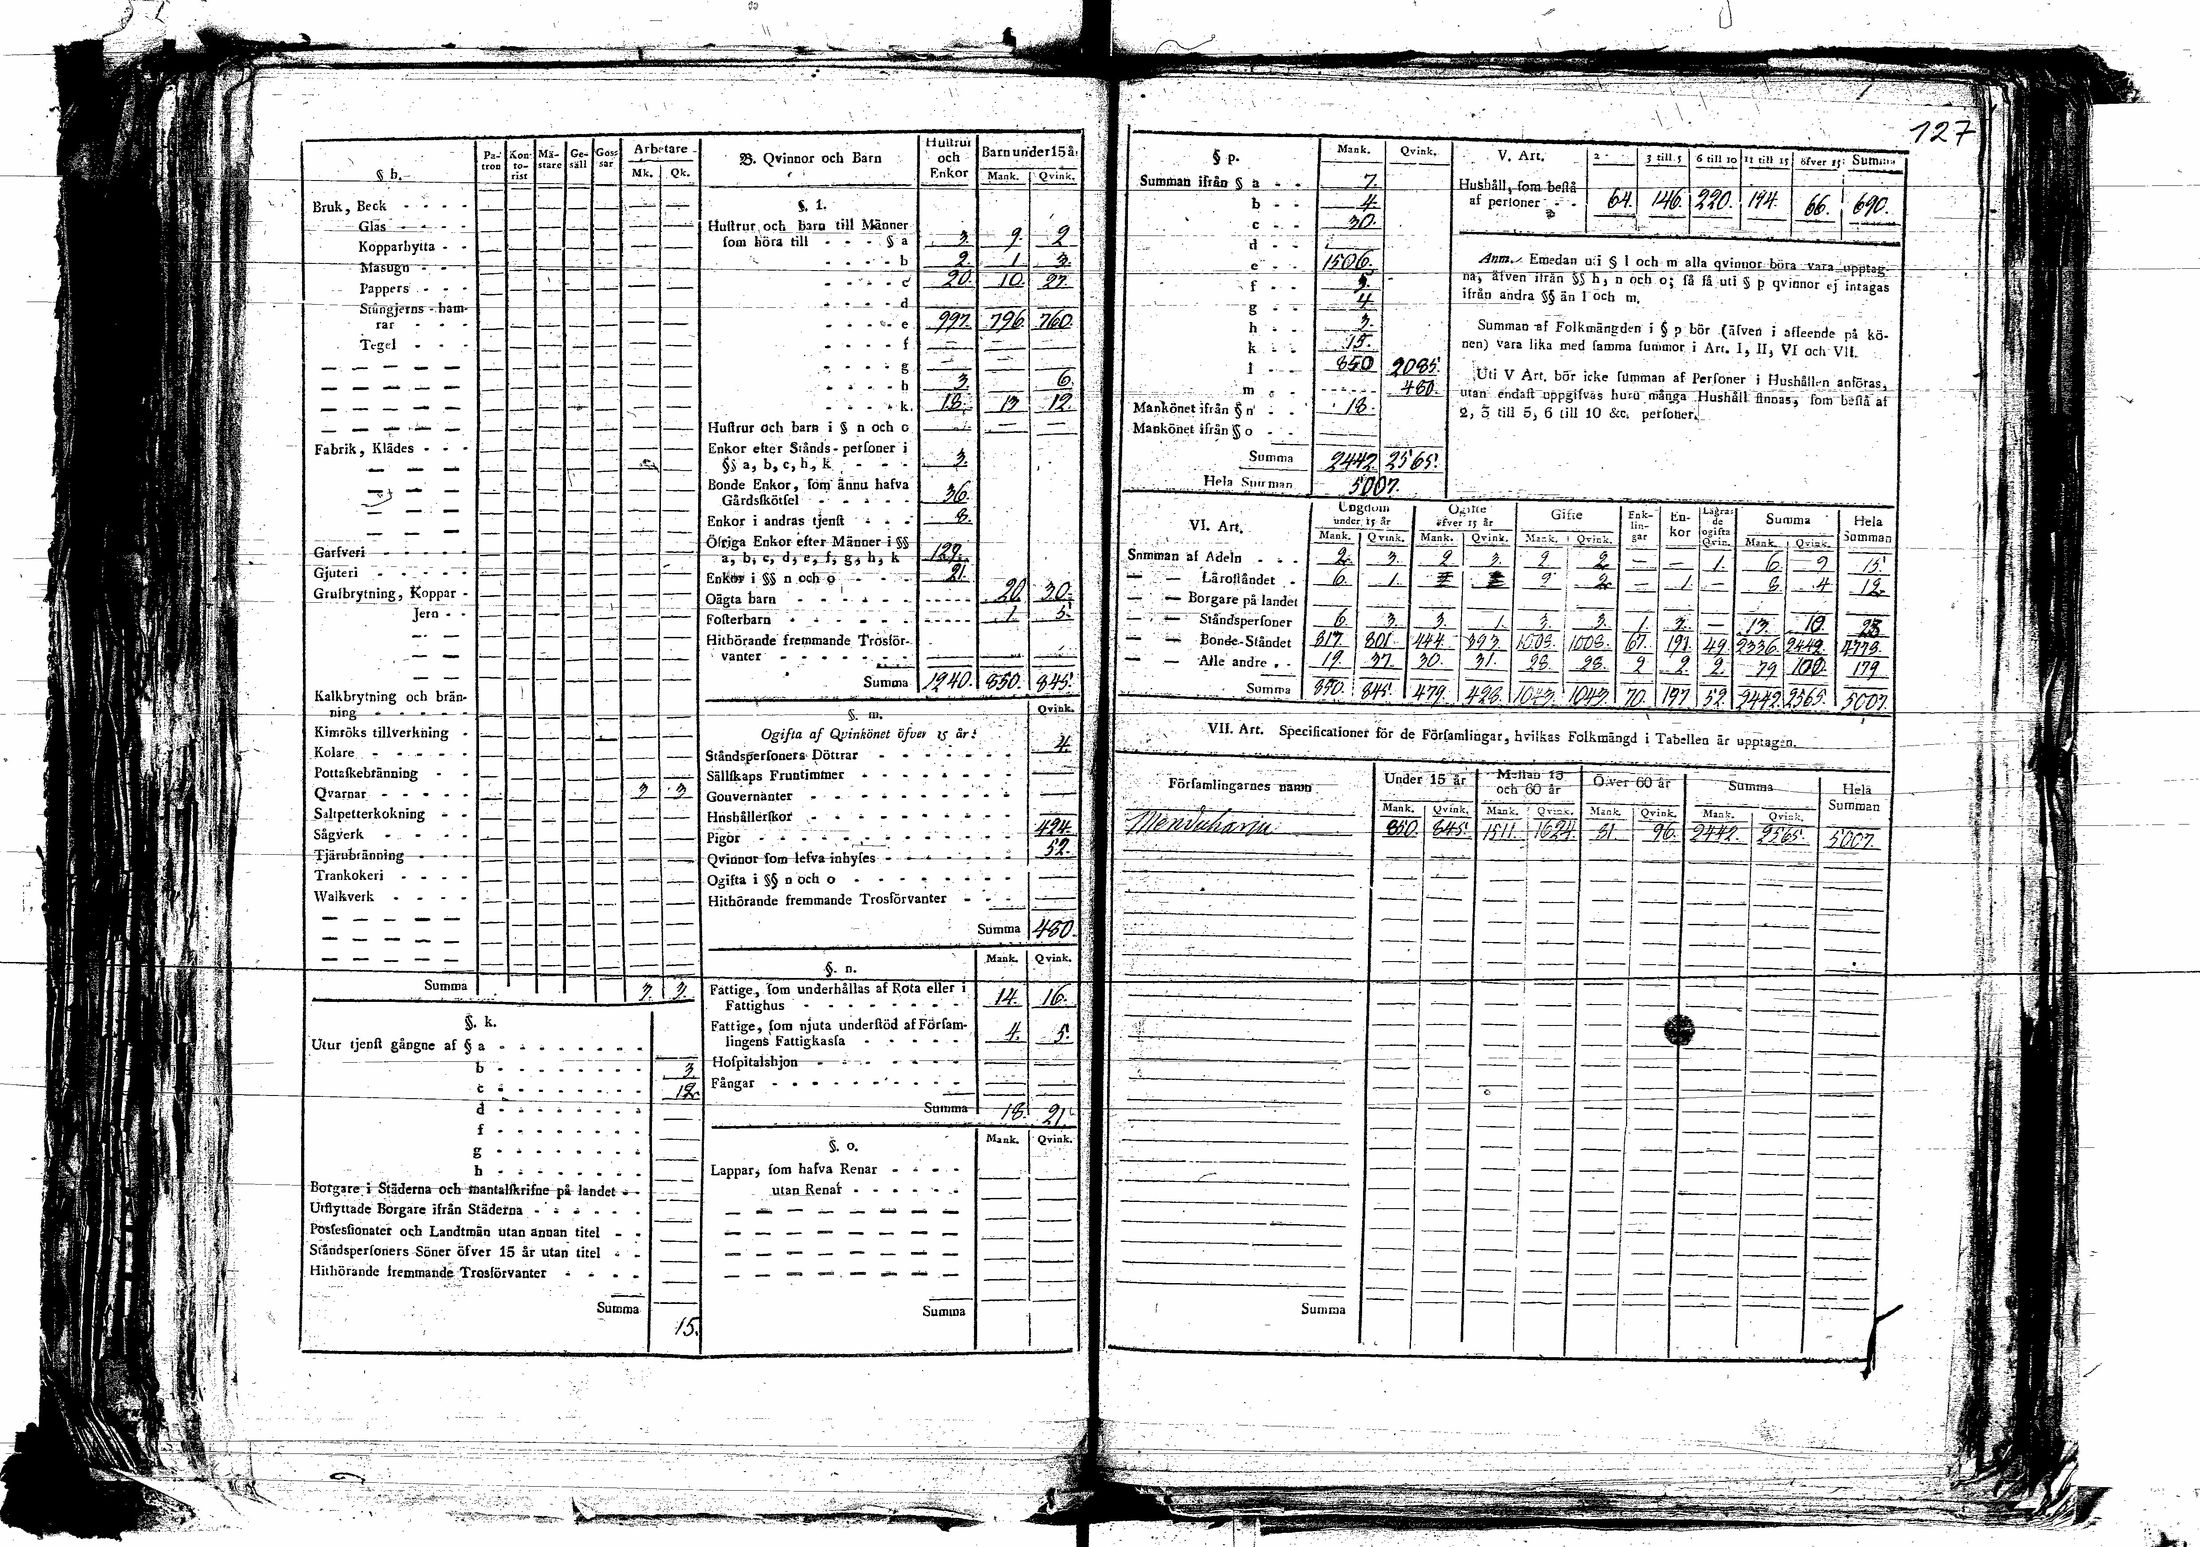 127
§ h.
Pa- tron
Kon- to- rist
Mä- stare
Ge- säll
Gos- sar
Arbetare
Mk. Qk.
Bruk, Beck
Glas
Kopparhytta
Masugn
Pappers
Stångjerns-ham-
rar
Tegel
Fabrik, Klädes
Garfveri
Gjuteri
Grufbrytning, Koppar
Jern
Kalkbrytning och brän-
ning
Kimröks tillverkning
Kolare
Pottaskebränning
Qvarnar 3 3
Saltpetterkokning
Sågverk
Tjärubränning
Trankokeri
Walkverk
Summa 3. 3.
§. k.
Utur tjenst gångne af § a
b 3
c 12
d
f
g
h
Borgare i Städerna och mantalskrifne på landet
Utflyttade Borgare ifrån Städerna
Possessionater och Landtmän utan annan titel
Ståndspersoners Söner öfver 15 år utan titel
Hithörande fremmande Trosförvanter
Summa
15.
B. Qvinnor och Barn
Hustrur och Enkor
Barn under 15 år
Mank. Qvink.
§. 1.
Hustrur och barn till Männer
som höra till § a 3. 9. 2
b 2. 1. 3.
c 20. 10. 27.
d
e 997. 796. 760.
f
g
h 3. 6.
k. 18. 13 12.
Hustrur och barn i § n och o
Enkor efter Stånds-personer i
§§ a, b, c, h, k 3.
Bonde Enkor, som ännu hafva
Gårdskötsel 36.
Enkor i andras tjenst 8.
Öfriga Enkor efter Männer i §§
a, b, c, d, e, f, g, h, k 129.
Enkor i §§ n och o 21.
Oägta barn 20. 30.
Fosterbarn 1. 5.
Hithörande fremmande Trosför-
vanter
Summa 1240. 850. 845.
§. m. Qvink.
Ogifta af Qvinkönet öfver 15 år:
Ståndspersoners Döttrar 4.
Sällskaps Fruntimmer
Gouvernanter
Hushållerskor
Pigor 424.
Qvinnor som lefva inhyses 52.
Ogifta i §§ n och o
Hithörande fremmande Trosförvanter
Summa 480.
§. n. Mank. Qvink.
Fattige, som underhållas af Rota eller i
Fattighus 14. 16.
Fattige, som njuta understöd af Försam-
lingens Fattigkassa 4. 5.
Hospitalshjon
Fångar
Summa 18. 21.
§. o. Mank. Qvink.
Lappar, som hafva Renar
utan Renar
Summa
§ p. Mank. Qvink.
Summan ifrån § a 7.
b 4.
c 30.
d
e 1506.
f 5.
g 4
h 3.
k 15.
l 850 2085.
m 480.
Mankönet ifrån § n 18.
Mankönet ifrån § o
Summa 2442. 2565.
Hela Summan 5007.
V. Art. 2 3 till 5 6 till 10 11 till 15 öfver 15 Summa
Hushåll, som bestå
af personer 64. 146. 220. 194. 66. 690.
Anm. Emedan uti § l och m alla qvinnor böra vara upptag-
na, äfven ifrån §§ h, n och o; så få uti § p qvinnor ej intagas
ifrån andra §§ än l och m.
Summan af Folkmängden i § p bör (äfven i afseende på kö-
nen) vara lika med samma summor i Art. I, II, VI och VII.
Uti V Art. bör icke summan af Personer i Hushållen anföras,
utan endast uppgifvas huru många Hushåll finnas, som bestå af
2, 3 till 5, 6 till 10 &c. personer.
VI. Art.
Ungdom under 15 år
Ogifte öfver 15 år
Gifte
Enk- lin- gar
En- kor
Lägra- de ogifta Qvin.
Summa
Hela Summan
Mank. Qvink. Mank. Qvink. Mank. Qvink. Mank. Qvink.
Summan af Adeln 2. 3. 2 3. 2 2. 1. 6. 9 15.
Läroståndet 6. 1. 2 2. 1. 8. 4 12.
Borgare på landet
Ståndspersoner 6. 3. 3. 1. 3. 3. 1. 3. 13. 10. 23
Bonde-Ståndet 817. 801. 444. 393. 1008. 1008. 67. 191. 49. 2336. 2442. 4778.
Alle andre 19. 37. 30. 31. 28. 28. 2 2. 2. 79 100. 179
Summa 850. 845. 479. 428. 1043. 1043. 70. 197 52. 2442. 2565. 5007.
VII. Art. Specificationer för de Församlingar, hvilkas Folkmängd i Tabellen är upptagen.
Församlingarnes namn
Under 15 år
Mellan 15 och 60 år
Öfver 60 år
Summa
Hela Summan
Mank. Qvink. Mank. Qvink. Mank. Qvink. Mank. Qvink.
Menduharju 850. 845. 1511. 1624. 81. 96. 2442. 2565. 5007.
Summa